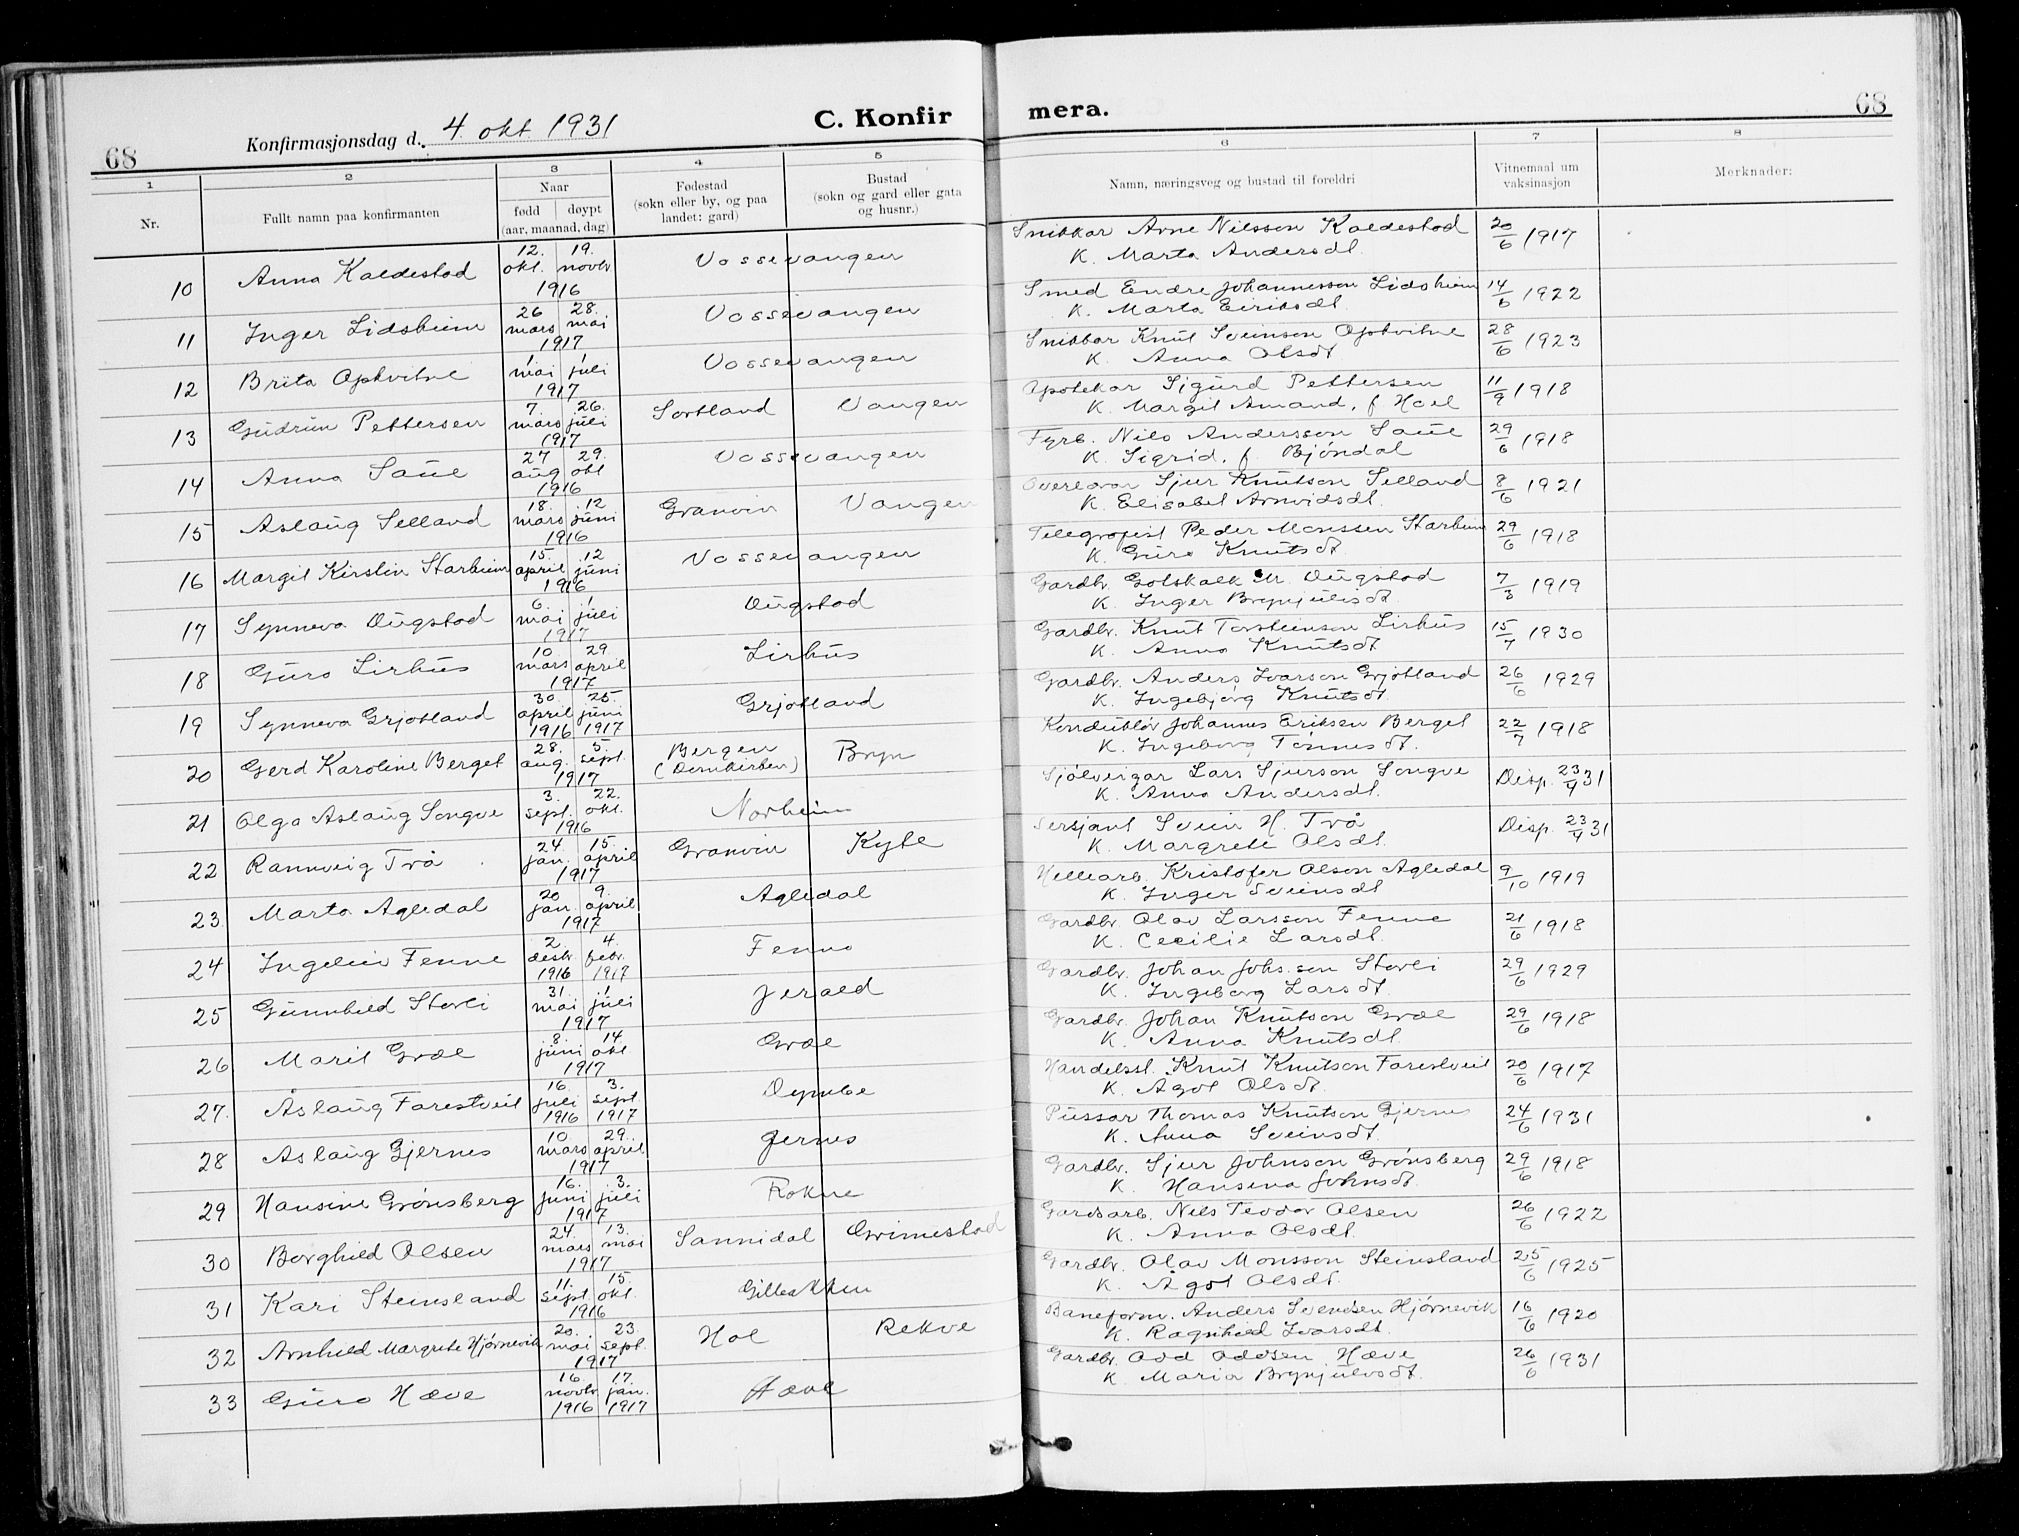 68
Konfirmasjonsdag d. 4. okt 1931
C. Konfir
mera.
68
1 2 3 4 5 6 7 8
Nr.
Fullt namn paa konfirmanten
Naar
født døypt
(aar, maanad, dag)
Fødestad
(sokn eller by, og paa
landet: gard)
Bustad
(sokn og gard eller gata
og husnr.)
Namn, næringsveg og bustad til foreldri
Vitnemaal um
vaksinasjon
Merknader:
10 Anna Kaldestad 12. okt. 19. novbr 1916 Vossevangen Snikkar Arne Nilsson Kaldestad 20/6 1917
K. Marta Andersdt.
11 Inger Lidsheim 26 mars 28. mai 1917 Vossevangen Smed Endre Johannesson Lidsheim 14/6 1922
K. Marta Eiriksdt.
12 Brita Opkvitne 1 mai 1 juli 1917 Vossevangen Snikkar Knut Sveinson Opkvitne 28/6 1923
K. Anna Olsdt
13 Gudrun Pettersen 7. mars 26. juli 1917 Sortland Vangen Apotekar Sigurd Pettersen 11/9 1918
K. Margit Amand. f. Hoel
14 Anna Saue 27 aug 29. okt 1916 Vossevangen Fyrb. Nils Andersson Saue 29/6 1918
K. Sigrid, f. Bjøndal
15 Aslaug Selland 18. mars 12 juni 1916 Granvin Vangen Overlærar Sjur Knutson Selland 8/6 1921
K. Elisabet Arnvidsdt.
16 Margit Kirstin Starheim 15. april 12 juni 1916 Vossevangen Telegrafist Peder Monssen Starheim 29/6 1918
K. Guro Knutsdt.
17 Synneva Dugstad 6. mai 1 juli 1917 Dugstad Gardbr. Gotskalk M. Dugstad 7/3 1919
K. Inger Brynjulvsdt.
18 Guro Lirhus 10 mars 29 april 1917 Lirhus Gardbr. Knut Torsteinson Lirhus 15/7 1930
K. Anna Knutsdt
19 Synneva Grjotland 30 april 1916 25. juni 1917 Grjotland Gardbr. Anders Ivarson Grjotland 26/6 1929
K. Ingebjørg Knutsdt.
20 Gerd Karoline Berget 28. aug. 5. sept. 1917 Bergen (Domkirken) Bryn Konduktør Johannes Eriksen Berget 22/7 1918
K. Ingeborg Tønnesdt.
21 Olga Aslaug Songve 3. sept. 22. okt. 1916 Norheim Sjølveigar Lars Sjurson Songve Disp. 23/4 31
K. Anna Andersdt.
22 Rannveig Trå 24. jan. 15. april 1917 Granvin Kyte Sersjant Svein H. Trå Disp. 23/4 31
K. Margrete Olsdt.
23 Marta Agledal 20 jan. 9. april 1917 Agledal Hellearb. Kristofer Olson Agledal 9/10 1919
K. Inger Sveinsdt
24 Ingelin Fenne 2. desbr. 1916 4. febr. 1917 Fenno Gardbr. Olav Larsson Fenne 21/6 1918
K. Cecilie Larsdt.
25 Gunnhild Storli 31. mai 1 juli 1917 Jerald Gardbr. Johan Johs.son Storli 29/6 1929
K. Ingeborg Larsdt.
26 Marit Græe 8. juni 14. okt 1917 Græe Gardbr. Johan Knutson Græe 29/6 1918
K. Anna Knutsdt.
27. Åslaug Farestveit 16. juli 1916 3. sept. 1917 Dymbe Handelsst. Knut Knutson Farestveit 20/6 1917
K. Ågot Olsdt.
28 Aslaug Gjernes 10 mars 29. april 1917 Gjernes Pussar Thomas Knutson Gjernes 24/6 1931
K. Anna Sveinsdt.
29 Hansine Grønsberg 16. juni 3. juli 1917 Rokne Gardbr. Sjur Johnson Grønsberg 29/6 1918
K. Hansena Johnsdt.
30 Borghild Olsen 24. mars 13. mai 1917 Sannidal Grimestad Gardsarb. Nils Teodor Olsen 26/6 1922
K. Anna Olsdt.
31 Kari Steinsland 11. sept. 15. okt. 1916 Gillesthun Gardbr. Olav Monsson Steinsland 25/6 1925
K. Ågot Olsdt.
32 Arnhild Margrete Hjørnevik 20. mai 23. sept. 1917 Hol Rekve Baneform. Anders Svendsen Hjørnevik 16/6 1920
K. Ragnhild Ivarsdt.
33 Guro Hæve 16. novbr. 1916 17. jan. 1917 Hæve Gardbr. Odd Oddsen Hæve 26/6 1931
K. Maria Brynjulvsdt.